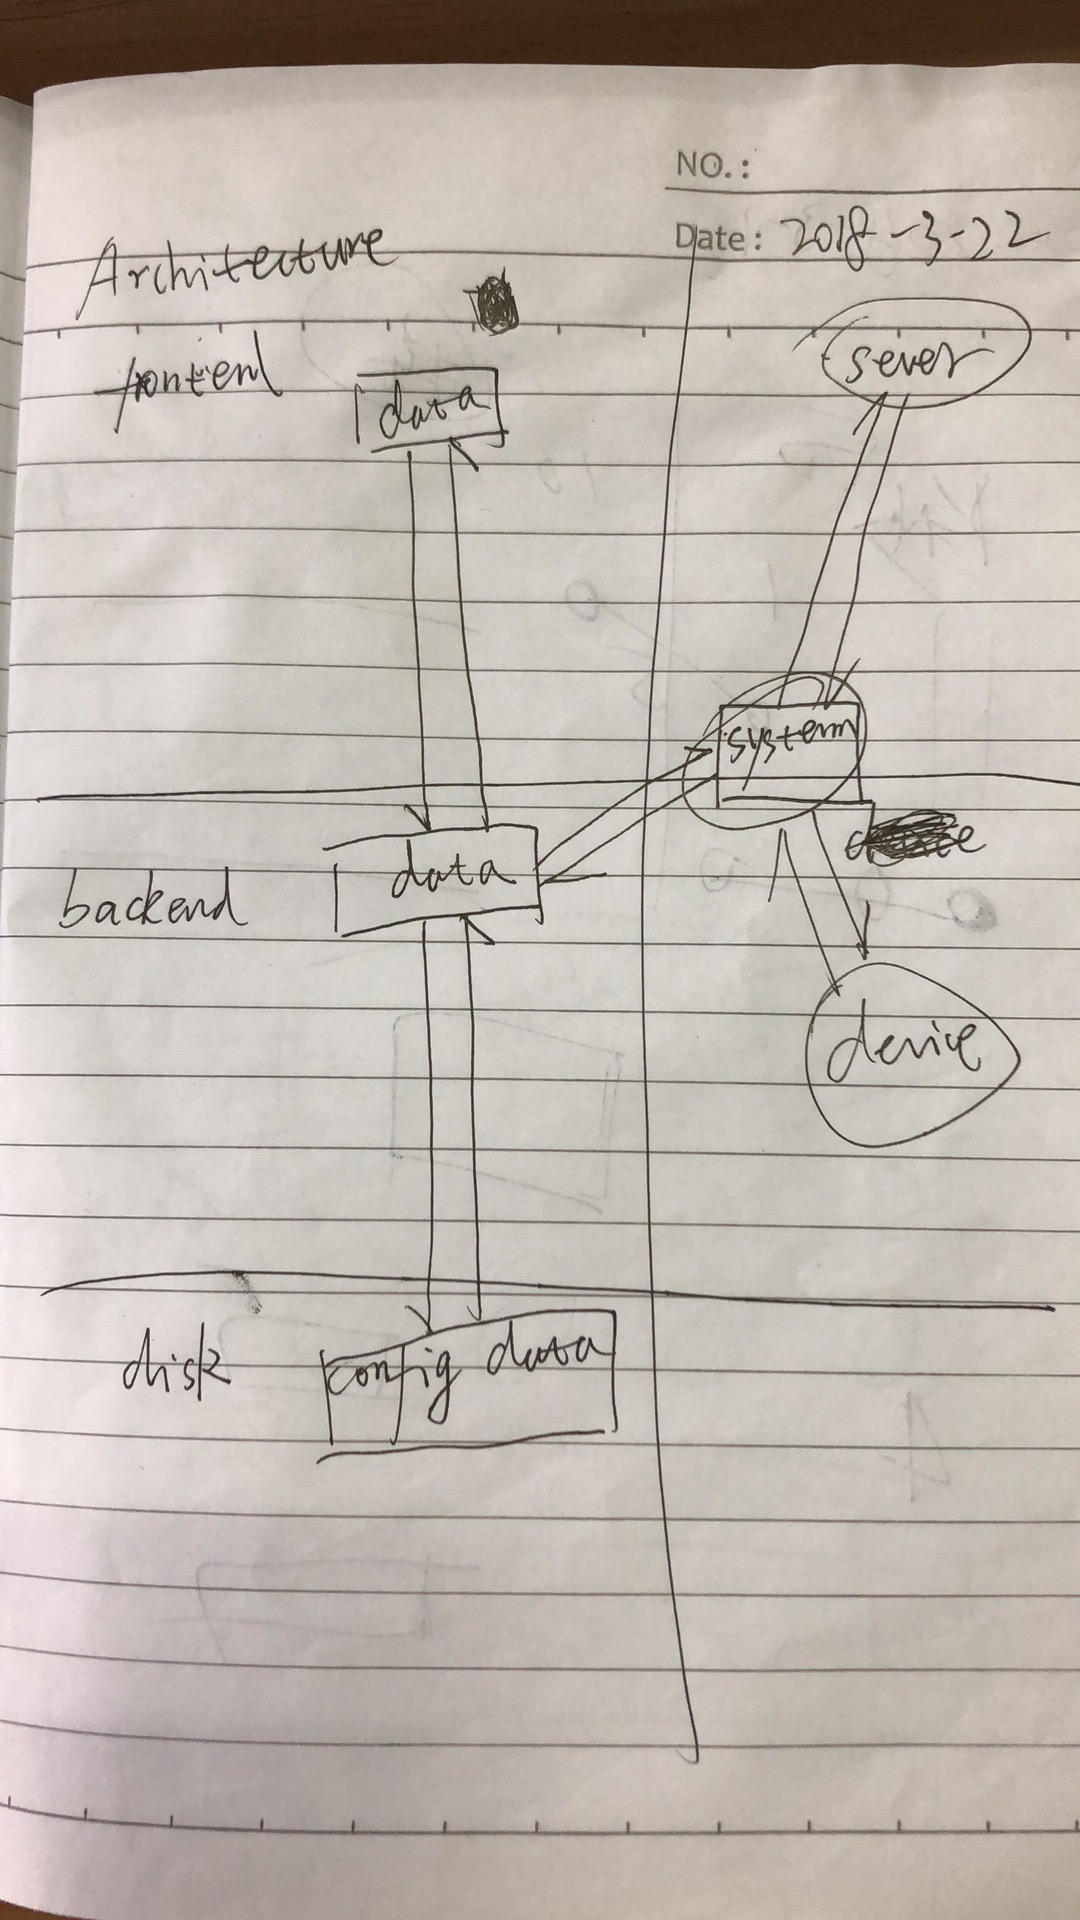 NO.:
Date: 2018-3-22
Architecture
frontend
data
sever
system
data
backend
device
disk
config data